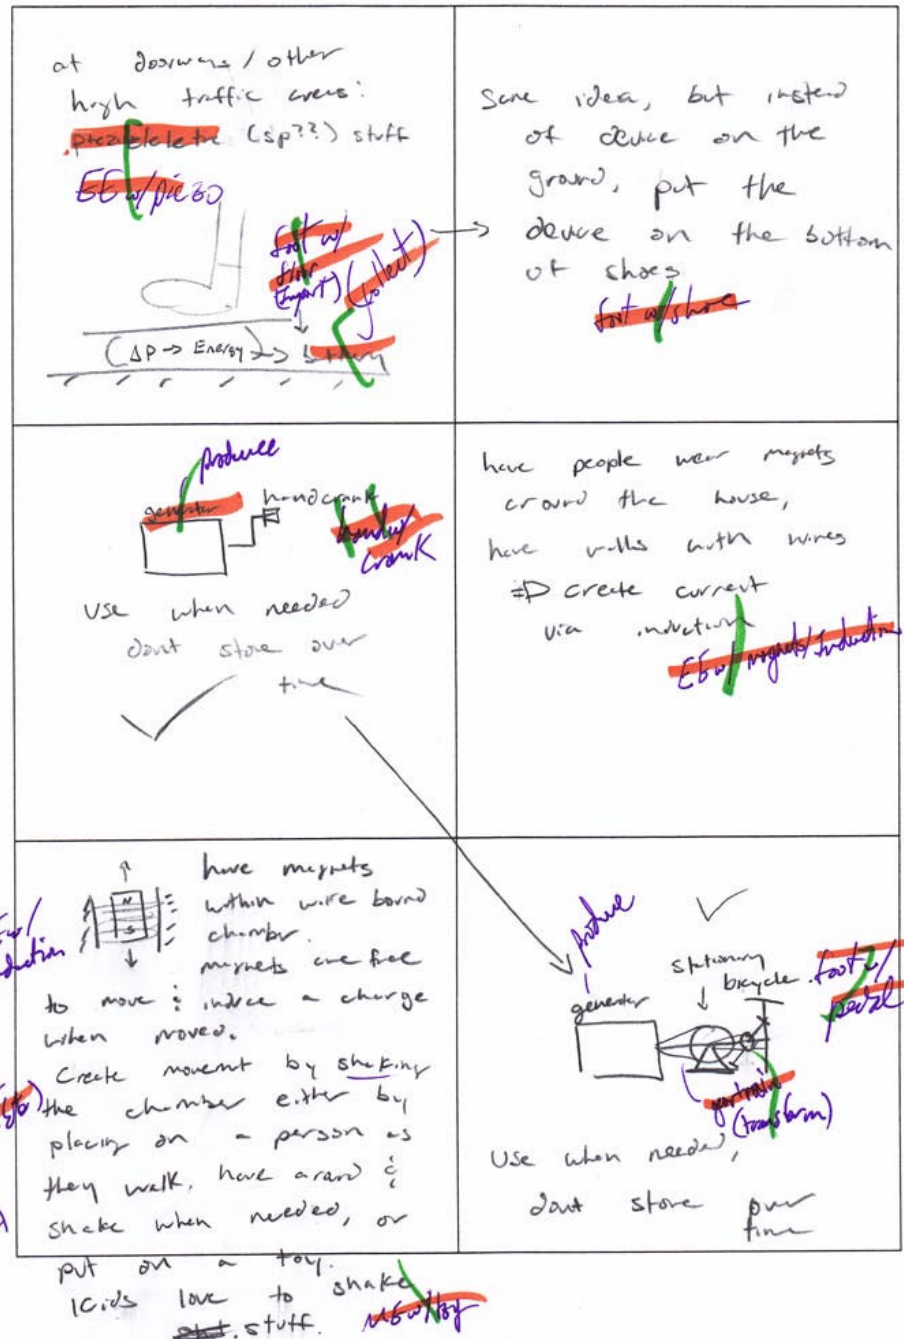 at doorways/other
high traffic areas:
piezoelelectric (sp??) stuff
EE w/ piezo
foot w/
floor
(Import)
(collect)
(ΔP → Energy) → battery
Same idea, but instead
of device on the
ground, put the
device on the bottom
of shoes
foot w/ shoe
produce
generator
handcrank
hand w/
crank
Use when needed
dont store over
time
have people wear magnets
around the house,
have walls with wires
⇒ create current
via induction
EE w/ magnets/Induction
N
S
have magnets
within wire bound
chamber.
magnets are free
to move & induce a charge
when moved.
Create movemt by shaking
the chamber either by
placing on a person as
they walk, have around &
shake when needed, or
put on a toy.
Kids love to shake
stuff.
ME w/ toy
produce
generator
stationary
bicycle
foot w/
pedal
geartrain
(transform)
Use when needed,
dont store over
time